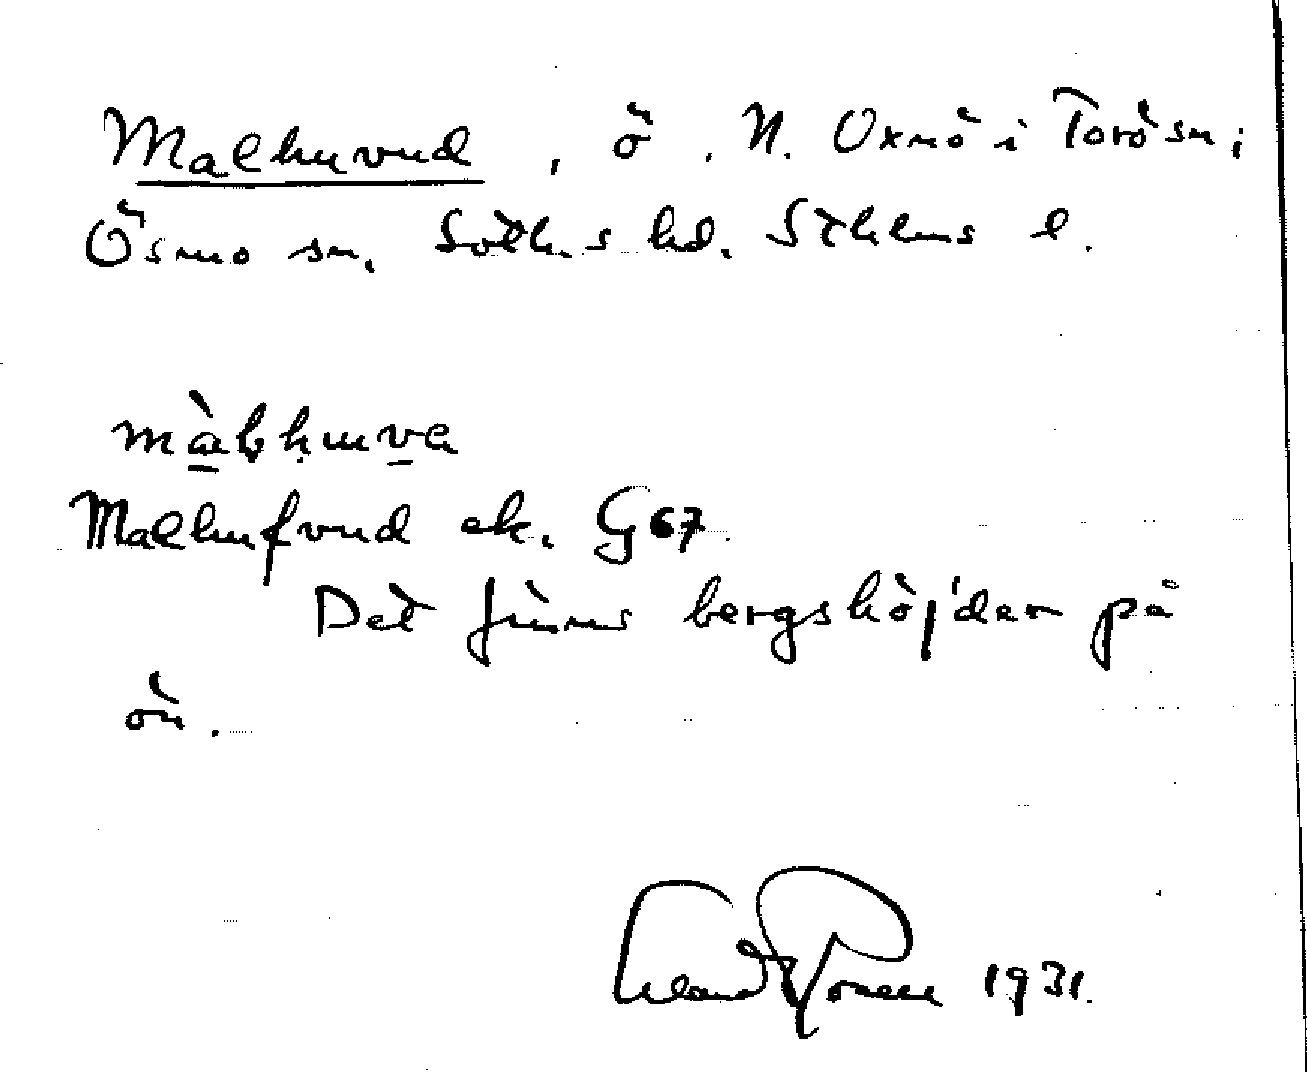 Malhuvud, ö, N. Oxnö i Torö sn,
Ösmo sn, Soth.s hd. Sthlms l.
Malhufvud ek. G67
Det finns bergshöjder på
ön.
1931.